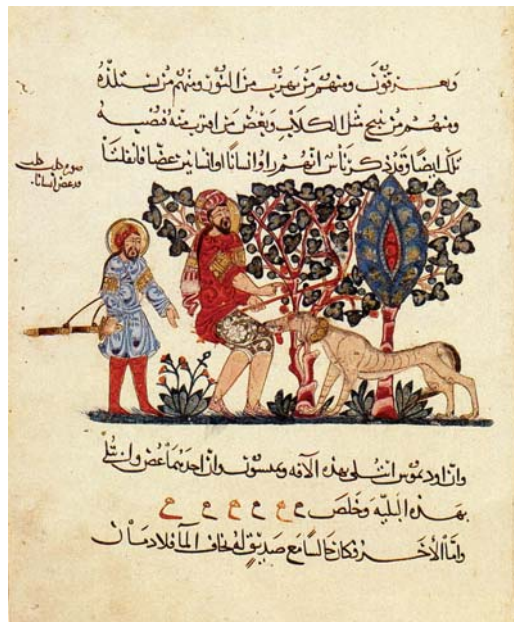 ويعرقون ومنهم من يهرب من النور ومنهم من يستلذه
ومنهم من ينبح مثل الكلاب ويعض من اقترب منه فيصيبه
ايضا وقد ذكر ناس انهم راوا انسانا او انسانين عضا فافلتا
صورة كلب كلب
قد عض انسانا
وان اوديموس ابتلى بهذه الآفة وان احدهما عض وابتلى
بهذه البلية وخلص
واما الاخر فكان جالسا مع صديق له يخاف الما